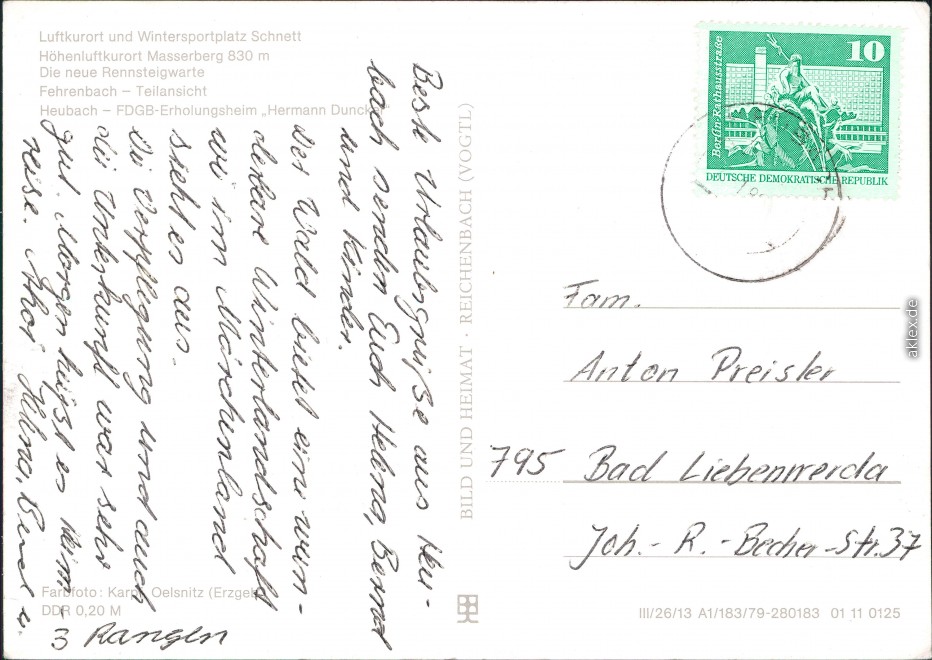 Luftkurort und Wintersportplatz Schnett
Höhenluftkurort Masserberg 830 m
Die neue Rennsteigwarte
Fehrenbach – Teilansicht
Heubach – FDGB-Erholungsheim „Hermann Dunck
Beste Urlaubsgrüße aus Heu-
bach senden Euch Helena, Bernd
und Kinder.
Der Wald bietet eine wun-
derbare Winterlandschaft
wie im Märchenland
sieht es aus.
Die Verpflegung und auch
die Unterkunft war sehr
gut. Morgen heißt es Heim-
reise. Ahoi Helena, Bernd u.
3 Rangen
Farbfoto: Karpf, Oelsnitz (Erzgeb.)
DDR 0,20 M
BILD UND HEIMAT · REICHENBACH (VOGTL)
Berlin-Rathausstraße
10
DEUTSCHE DEMOKRATISCHE REPUBLIK
Fam.
Anton Preisler
795 Bad Liebenwerda
Joh.-R.-Becher-Str. 37
III/26/13 A1/183/79-280183 01 11 0125
aklex.de